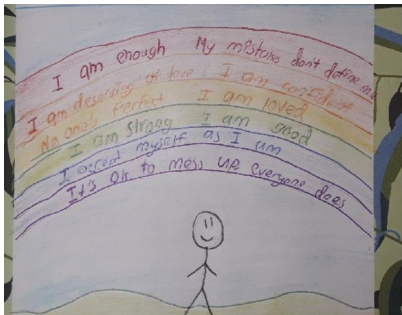 I am enough My mistakes don't define me
I am deserving of love I am confident
No one's perfect I am loved
I am strong I am good
I accept myself as I am
It's ok to mess up everyone does